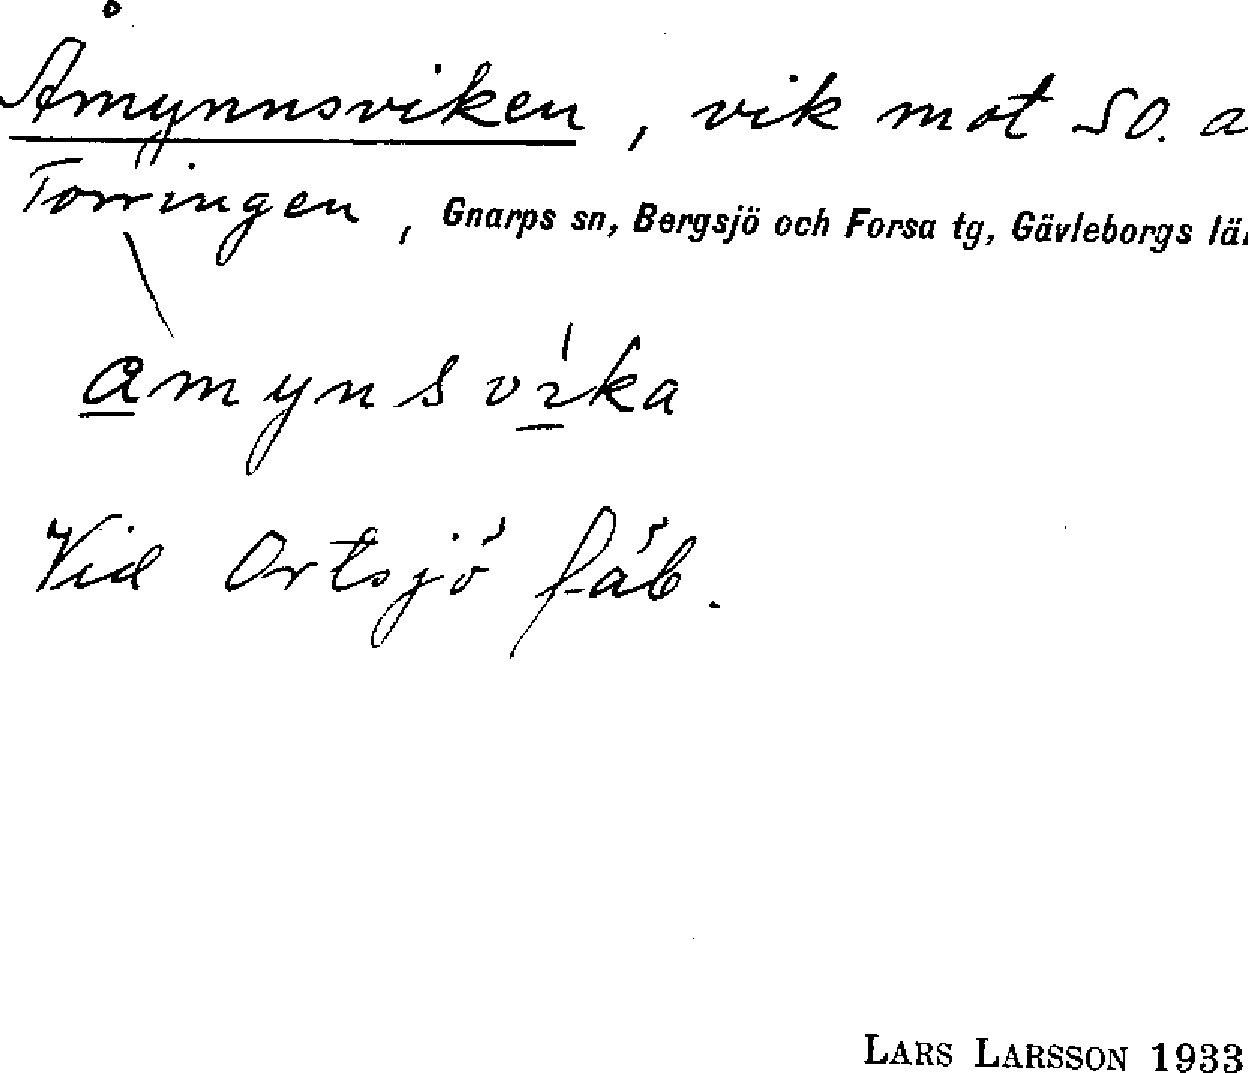 Åmynnsviken, vik mot SO. a
Torringen, Gnarps sn, Bergsjö och Forsa tg, Gävleborgs lä
åmynsvika
Vid Ortsjö fäb.
LARS LARSSON 1933